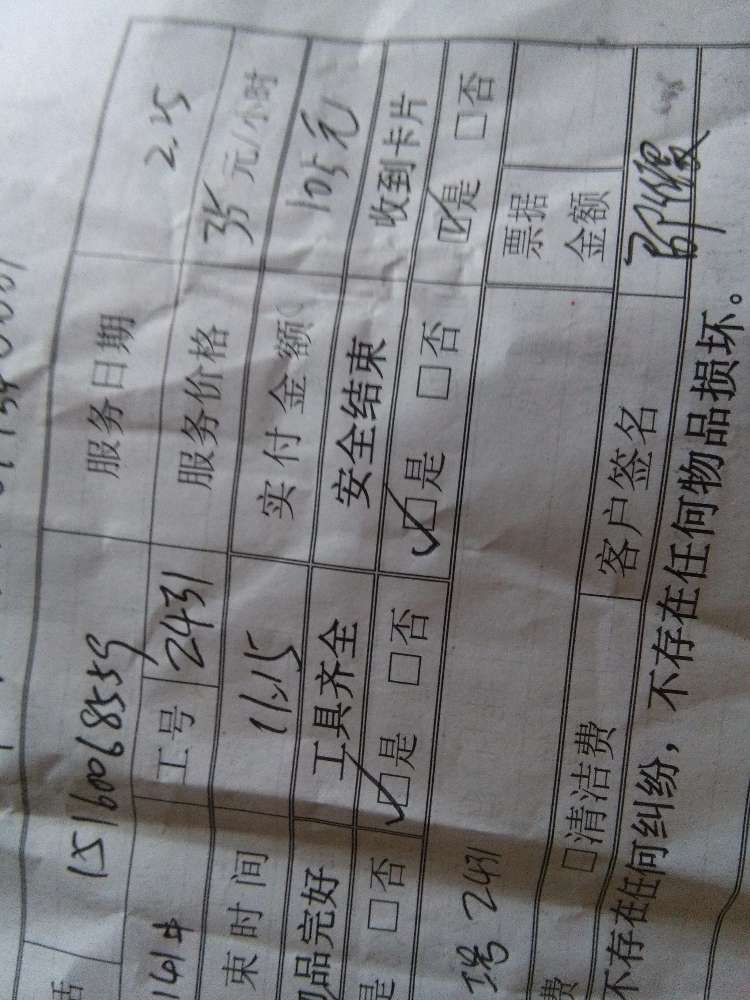 15160068559 服务日期 2.25
工号 2431 服务价格 35元/小时
束时间 11:15 实付金额 105元
品完好 工具齐全 安全结束 收到卡片
是 □否 ☑是 □否 ☑是 □否 ☑是 □否
工号 2431
票据金额
费 □清洁费 客户签名
不存在任何纠纷，不存在任何物品损坏。